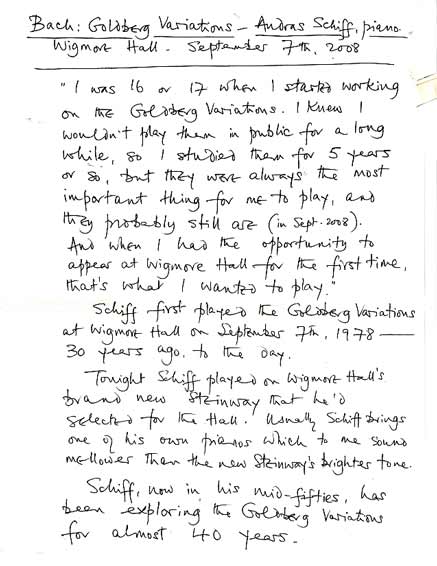 Bach: Goldberg Variations - Andras Schiff, piano
Wigmore Hall. September 7th, 2008
"I was 16 or 17 when I started working
on the Goldberg Variations. I knew I
wouldn't play them in public for a long
while, so I studied them for 5 years
or so, but they were always the most
important thing for me to play, and
they probably still are (in Sept. 2008).
And when I had the opportunity to
appear at Wigmore Hall for the first time,
that's what I wanted to play."
Schiff first played the Goldberg Variations
at Wigmore Hall on September 7th, 1978 —
30 years ago, to the day.
Tonight Schiff played on Wigmore Hall's
brand new Steinway that he'd
selected for the Hall. Usually Schiff brings
one of his own pianos which to me sound
mellower than the new Steinway's brighter tone.
Schiff, now in his mid-fifties, has
been exploring the Goldberg Variations
for almost 40 years.